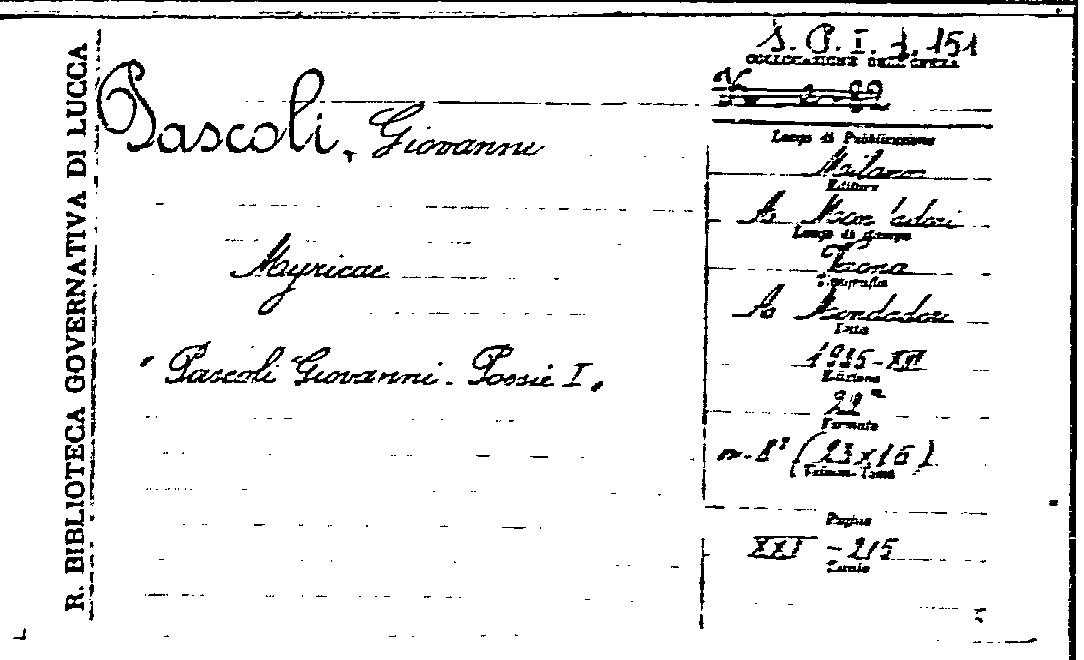 R. BIBLIOTECA GOVERNATIVA DI LUCCA
Pascoli, Giovanni
Myricae
"Pascoli Giovanni. Poesie I,
S. P. I. 1. 151
COLLOCAZIONE DELL'OPERA
Luogo di Pubblicazione
Milano
Editore
A. Mondadori
Luogo di stampa
Verona
Tipografia
A. Mondadori
Data
1935-XIII
Edizione
22ª
Formato
in-8° (23x16)
Pagine
XXI - 215